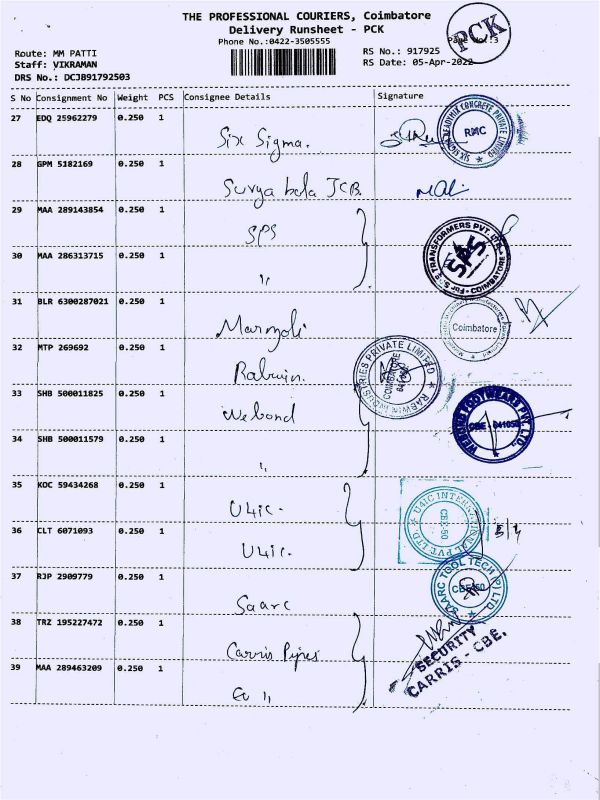 THE PROFESSIONAL COURIERS, Coimbatore
Delivery Runsheet - PCK
PCK
Phone No.:0422-3505555
Route: MM PATTI
RS No.: 917925
Staff: VIKRAMAN
RS Date: 05-Apr-2022
DRS No.: DCJ891792503
S No Consignment No Weight PCS Consignee Details Signature
27 EDQ 25962279 0.250 1 Six Sigma.
RMC
28 GPM 5182169 0.250 1 Surya bala JCB.
29 MAA 289143854 0.250 1 SPS
TRANSFORMERS PVT. LTD. SPS COIMBATORE
30 MAA 286313715 0.250 1 "
31 BLR 6300287021 0.250 1
Coimbatore
32 MTP 269692 0.250 1 Rabwin.
RABWIN INDUSTRIES PRIVATE LIMITED COIMBATORE
33 SHB 500011825 0.250 1 Webond
FOOTWEARS PVT. LTD. CBE - 641050
34 SHB 500011579 0.250 1 "
35 KOC 59434268 0.250 1 U4ic.
U4IC INTERNATIONAL PVT. LTD. CBE-50
36 CLT 6071093 0.250 1 U4ic.
37 RJP 2909779 0.250 1 Saarc
SAARC TOOL TECH (P) LTD. CBE-50
38 TRZ 195227472 0.250 1 Carris Pipes
SECURITY
CARRIS - CBE.
39 MAA 289463209 0.250 1